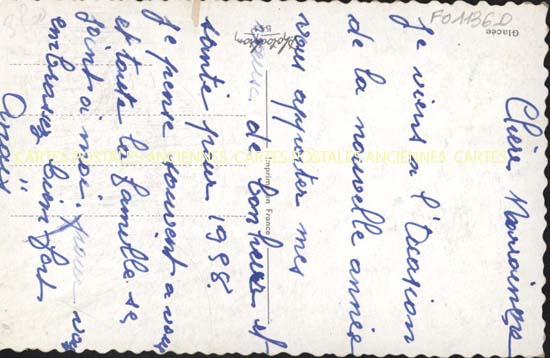 Chère Marraine
Je viens a l'Ocation
de la nouvelle année
vous apporter mes
voeux de bonheur et
santé pour 1988.
Je pense souvent a vous
et toute la famille se
joint a moi pour vous
embrasser bien fort
Anaïs
Glacée
FO1136D
Imprimerie France
CARTES POSTALES ANCIENNES CARTES POSTALES ANCIENNES CARTES